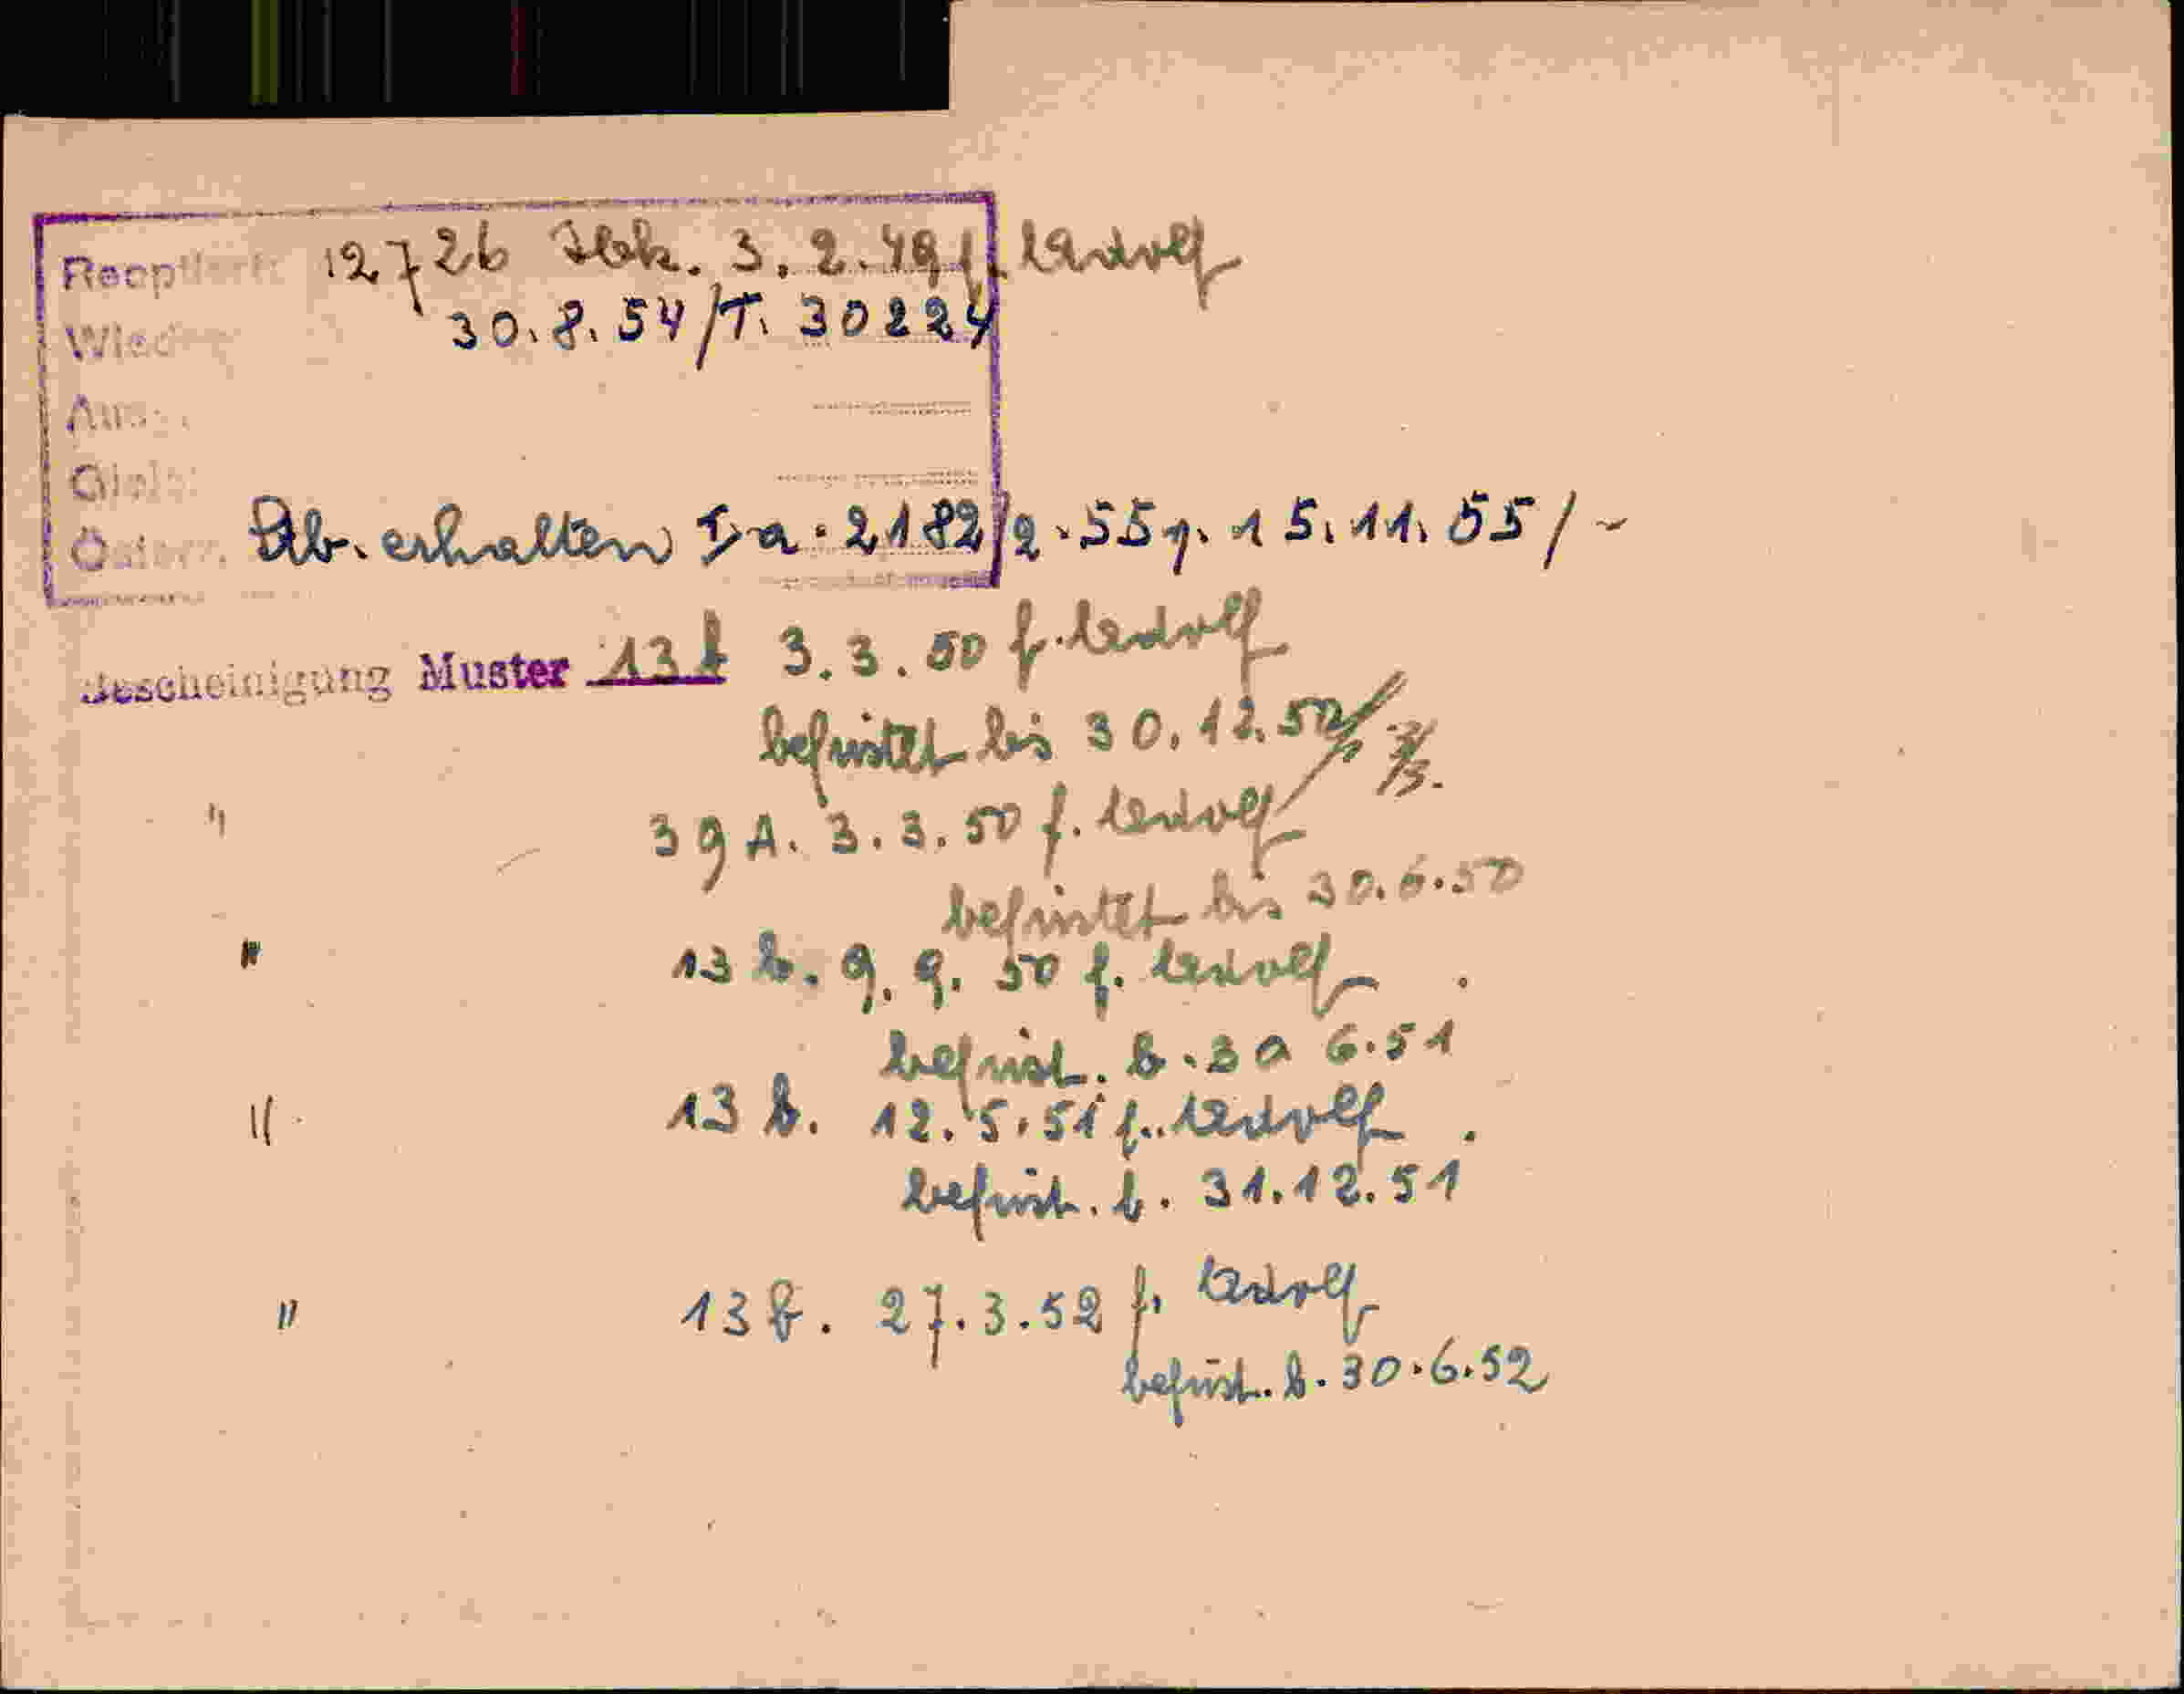 Reoptiert: 12726 Ibk. 3.2.49 f. Adolf
30.8.54/T. 30224
Stb. erhalten Ia-2182/2-55 v. 15.11.55/-
Bescheinigung Muster 13b 3.3.50 f. Adolf
befristet bis 30.12.50
" 39A. 3.3.50 f. Adolf
befristet bis 30.6.50
" 13b. 9.9.50 f. Adolf
befrist. b. 30 6.51
" 13b. 12.5.51 f. Adolf
befrist. b. 31.12.51
" 13b. 27.3.52 f. Adolf
befrist. b. 30.6.52